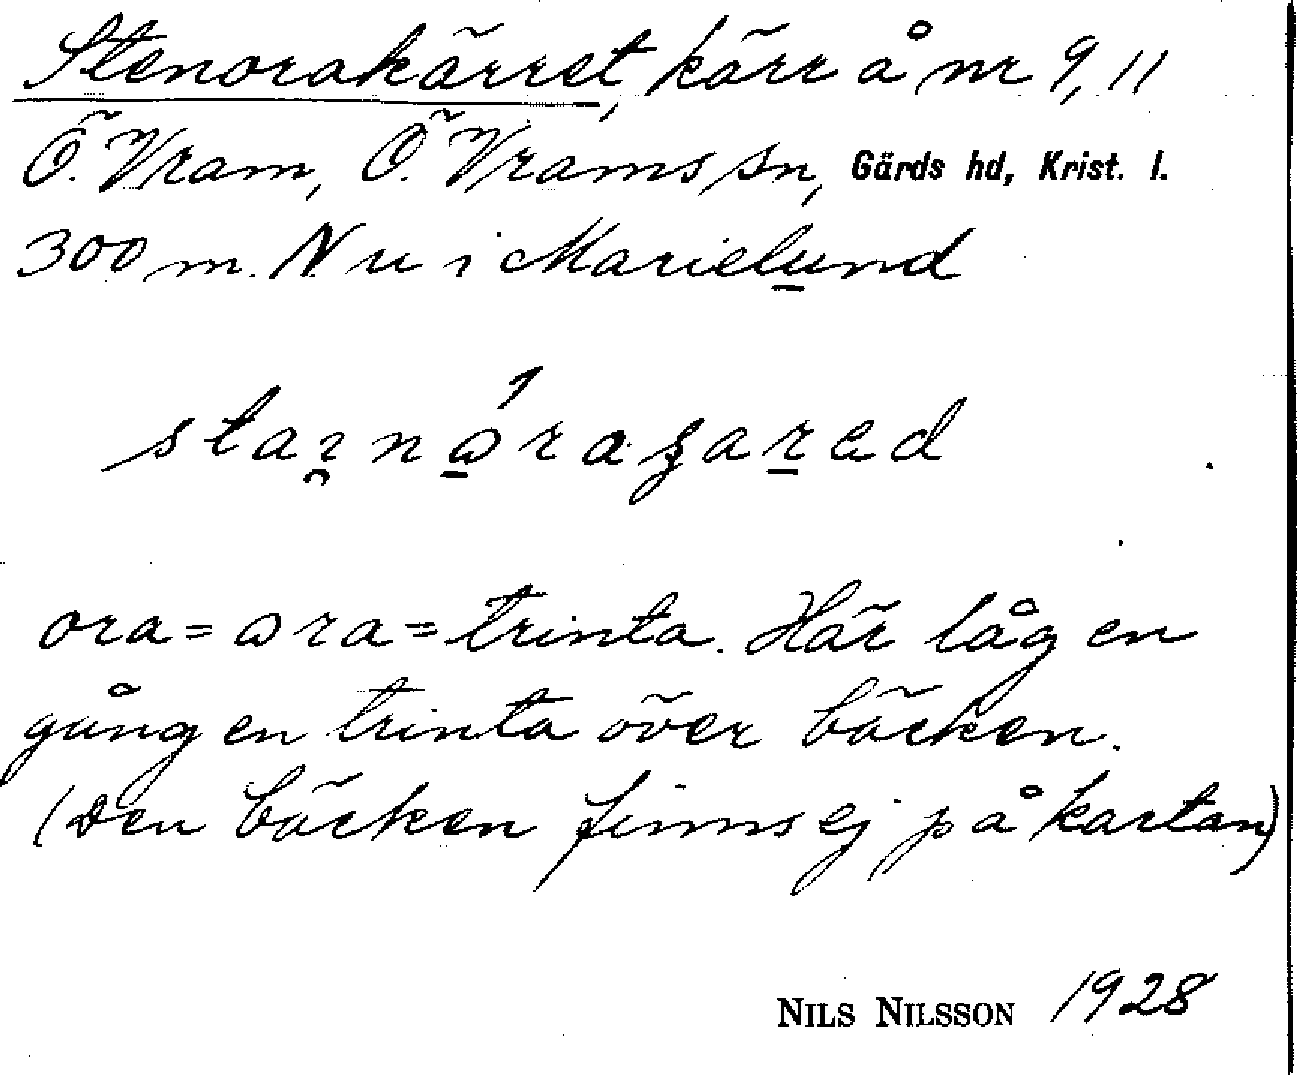 Stenorakärret, kärr å nr 9, 11
Ö. Vram, Ö. Vrams sn, Gärds hd, Krist. l.
300 m. N u i Marielund
ora = ɷra = trinta. Här låg en
gång en trinta över bäcken.
(Den bäcken finns ej på kartan)
NILS NILSSON 1928